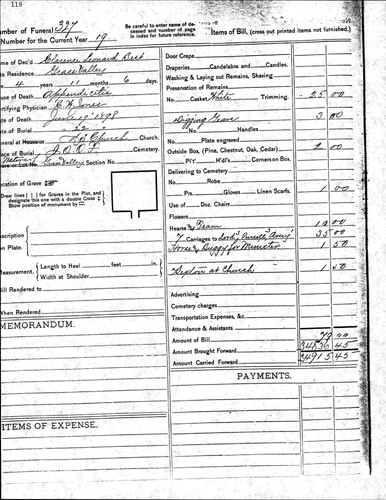 118
Number of Funeral 327
Number for the Current Year 19
Be careful to enter name of deceased and number in the index for future reference.
Items of Bill, (cross out printed items not furnished.)
me of Dec'd Clarence Leonard
te Residence Grass Valley
e 4 years 11 months 6 days
se of Death Appendicitis
rtifying Physician C W Jones
te of Death June 19" 1898
te of Burial " 22 "
neral at House Church.
Cemetery.
or Lot No. Grass Valley Section No.
ocation of Grave
Draw lines for Graves in the Plot, and designate this one with a double Cross
Show position of monument by
scription
n Plate.
Measurement. Length to Heel feet in.
Width at Shoulder "
ill Rendered
When Rendered
MEMORANDUM.
ITEMS OF EXPENSE.
Door Crape
Draperies Candelabra and Candles.
Washing & Laying out Remains, Shaving
Preservation of Remains
No. Casket White Trimming. 25 00
Digging Grave 3 00
No. Handles
Plate engraved
Outside Box, (Pine, Chestnut, Oak, Cedar) 2 00
P't'r H'd'l's Corners on Box.
Delivering to Cemetery
No. Robe
Prs. Gloves Linen Scarfs. 1 00
Use of Doz. Chairs
Flowers
Hearse & Team 10 00
7 Carriages to 35 00
Horse & Buggy for Minister 1 50
Sexton at Church 1 50
Advertising
Cemetery charges
Transportation Expenses, &c.
Attendance & Assistants
Amount of Bill 79 00
Amount Brought Forward 34836 45
Amount Carried Forward 34915 45
PAYMENTS.